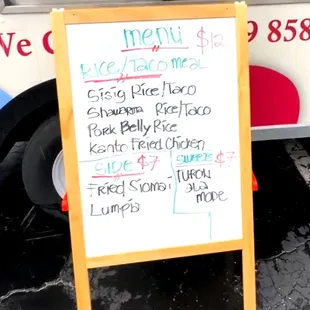 We
9 858
menu $12
RICE/TACO MEAL
Sisig Rice/Taco
Shawarma Rice/Taco
Pork Belly Rice
Kanto Fried Chicken
SIDE $7
Fried Siomai
Lumpia
SWEETS $7
TURON
ala
mode